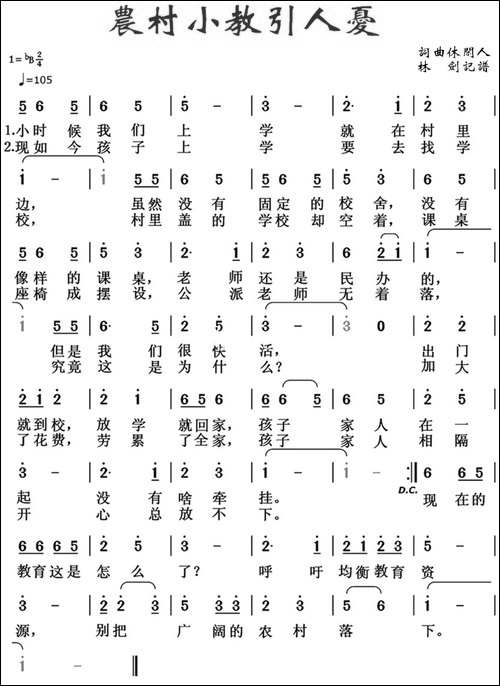 農村小教引人憂
1=♭B 2/4
♩=105
詞曲休閒人
林 劍記譜
5 6 5 | 6 5 | 5 – | 3 – | 2· 1 | 2 2 |
1.小时候我们上学就在村里
2.现如今孩子上学要去找学
1 – | 1 5 5 | 6 5 | 2 3 | 5 – | 6 5 |
边,虽然没有固定的校舍,没有
校,村里盖的学校却空着,课桌
5 6 5 | 6 3 | 2· 1 | 2 3 | 6 2 1 | 1 – |
像样的课桌,老师还是民办的,
座椅成摆设,公派老师无着落,
1 5 5 | 6· 5 | 2 5 | 3 – | 3 0 | 2 2 |
但是我们很快活,出门
究竟这是为什么?加大
2 1 2 | 2 1 | 6 5 6 | 6 6 5 | 3 5 | 2 2 |
就到校,放学就回家,孩子家人在一
了花费,劳累了全家,孩子家人相隔
3 – | 2· 1 | 2 3 | 1 – | 1 – :| 6 6 5 |
D.C.
起没有啥牵挂。现在的
开心总放不下。
6 6 6 5 | 2 5 | 3 – | 2· 1 | 2 1 2 3 | 2 – |
教育这是怎么了?呼吁均衡教育资
3 – | 2 2 3 | 5 3 3 | 2 3 | 5 6 | 1 – |
源,别把广阔的农村落下。
1 – ‖